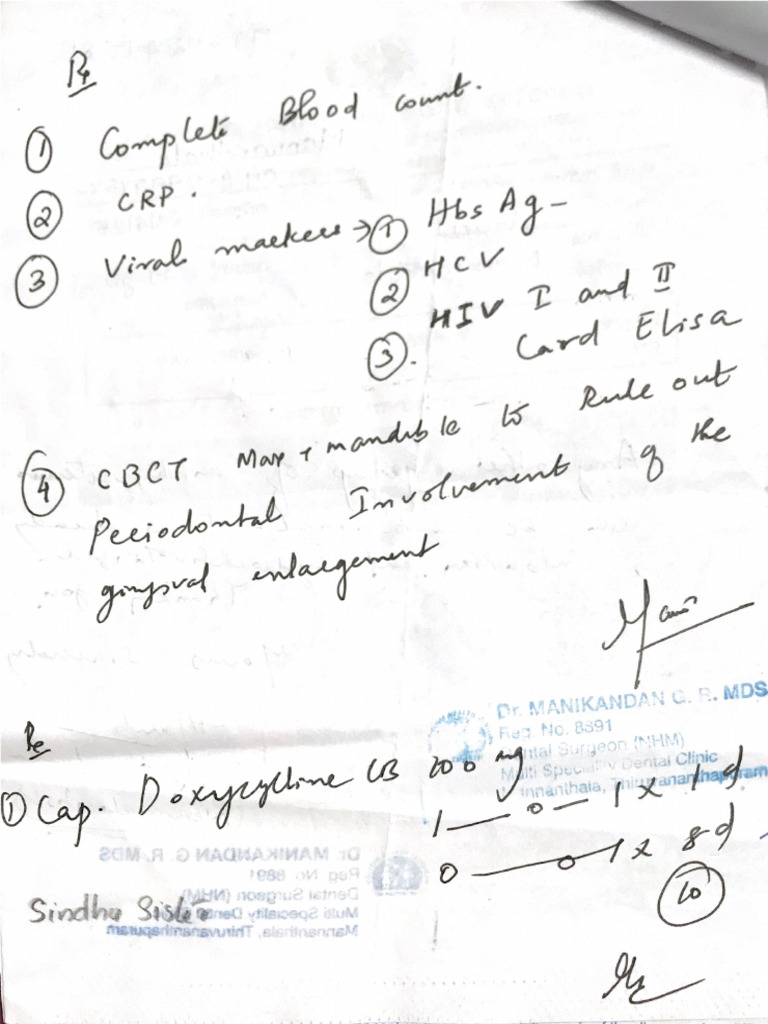 Rx
① Complete Blood count.
② CRP.
③ Viral markers → ① Hbs Ag -
② HCV
③. HIV I and II
Card Elisa
④ CBCT Max + mandible to Rule out
Periodontal Involvement of the
gingival enlargement
Dr. MANIKANDAN G. R. MDS
Reg. No. 8891
Dental Surgeon (NHM)
Multi Speciality Dental Clinic
Mannanthala, Thiruvananthapuram
Rx
① Cap. Doxycycline LB 200 mg
1 — 0 — 1 x 1 d
0 — 0 1 x 8 d
⑩
Dr. MANIKANDAN G. R. MDS
Reg. No. 8891
Dental Surgeon (NHM)
Multi Speciality Dental Clinic
Mannanthala, Thiruvananthapuram
Sindhu Sister